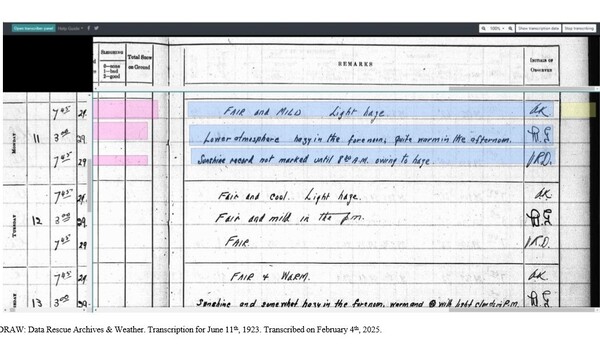 Open transcription panel Help Guide
100% Show transcription data Stop transcribing
SLEIGHING
0—none
1—bad
2—good
Total Snow
on Ground
REMARKS
INITIALS OF
OBSERVER
MONDAY
11
7 45 29. FAIR and MILD Light haze. AK
3 00 29. Lower atmosphere hazy in the forenoon; quite warm in the afternoon.
7 45 29 Sunshine record not marked until 8 A.M. owing to haze. V.R.D.
TUESDAY
12
7 45 29. Fair and cool. Light haze. AK
3 00 29. Fair and mild in the p.m.
7 45 29 FAIR. V.R.D.
7 45 29 FAIR & WARM. AK
13 3 00 29. Sunshine and somewhat hazy in the forenoon, warm and with light clouds in P.M.
DRAW: Data Rescue Archives & Weather. Transcription for June 11th, 1923. Transcribed on February 4th, 2025.